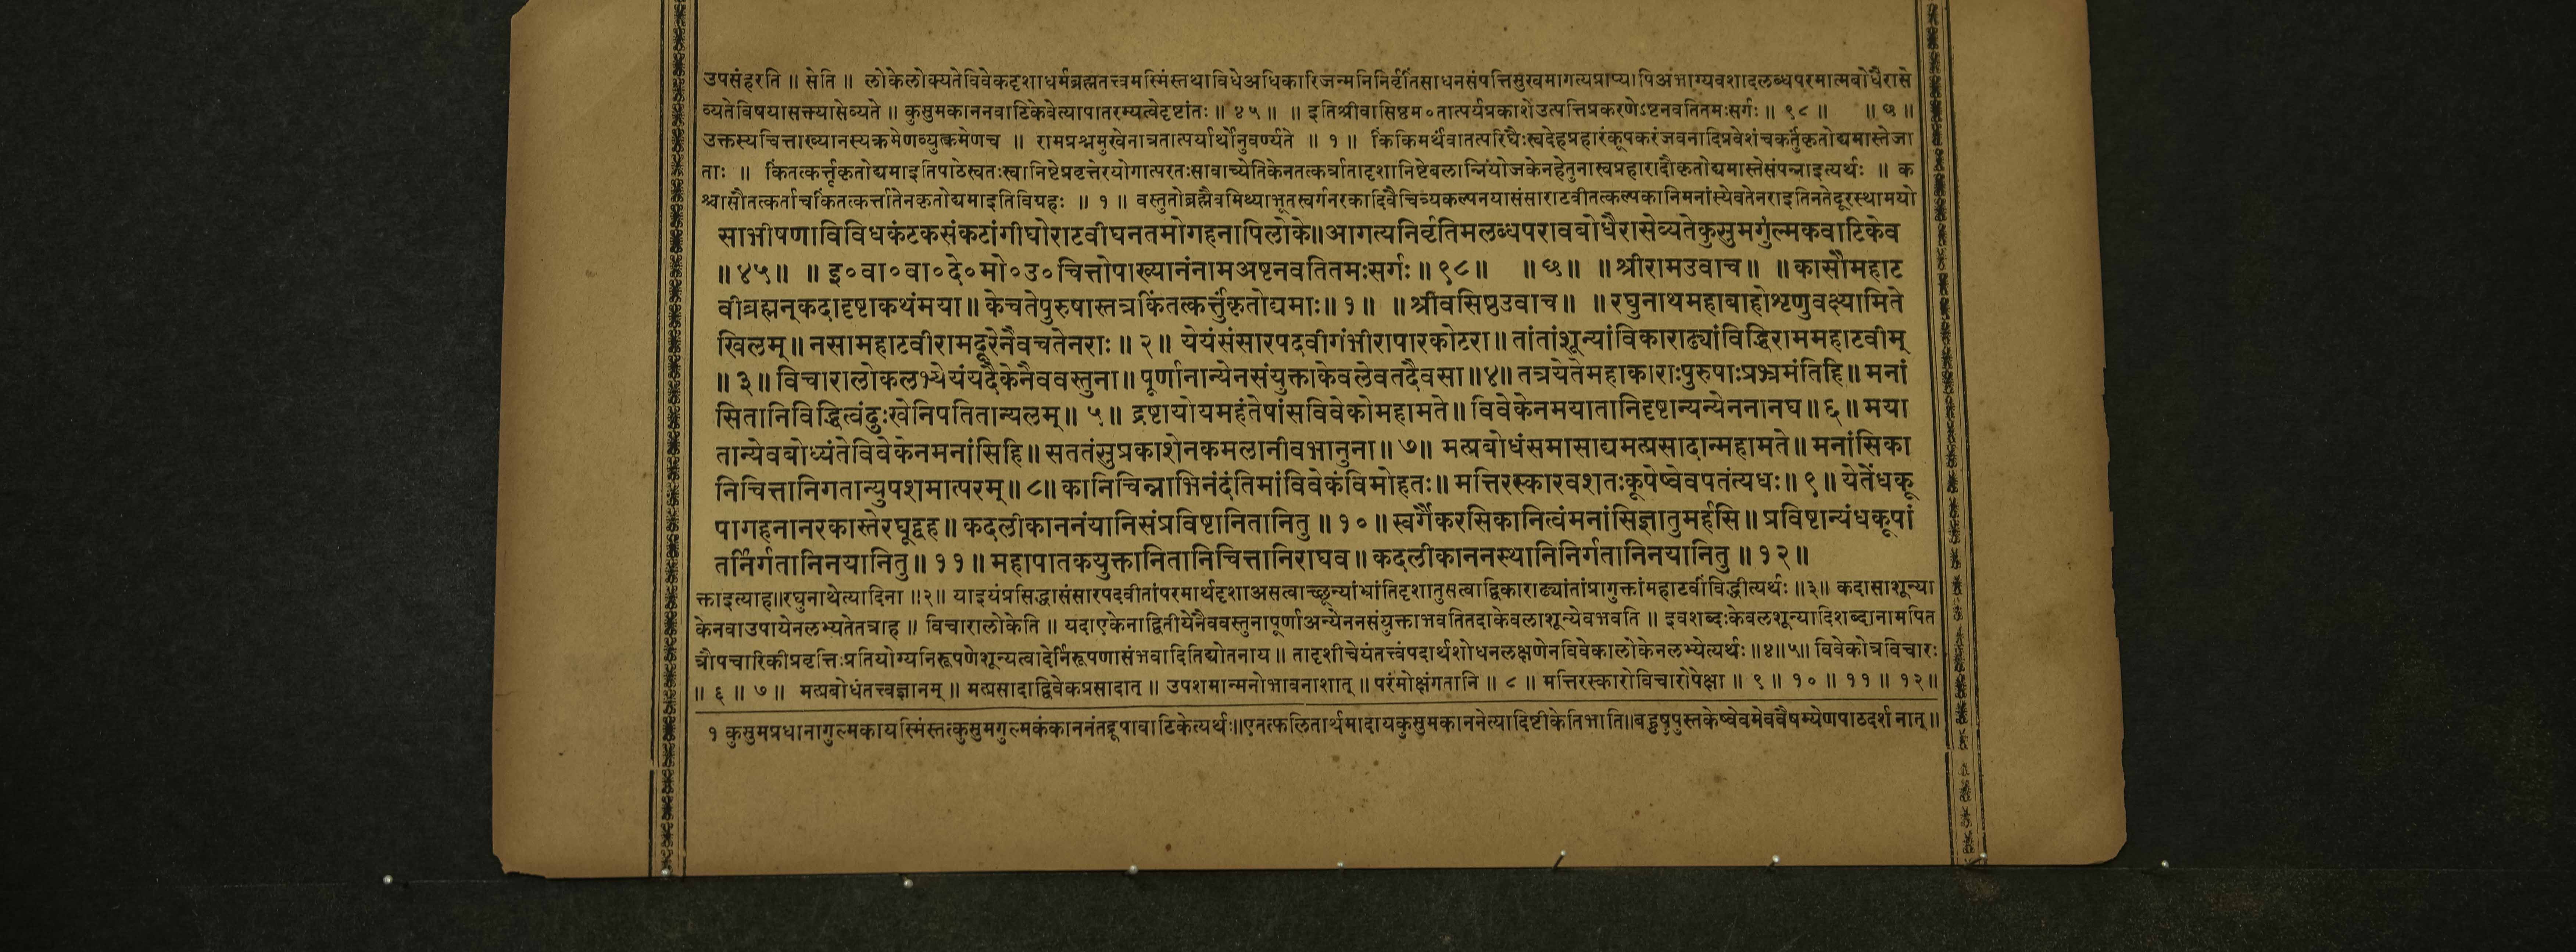 उपसंहरति ॥ सेति ॥ लोकेलोक्यतेविवेकदृशाधर्मब्रह्मतत्त्वमस्मिंस्तथाविधेअधिकारिजन्मनिनिर्वृतिंसाधनसंपत्तिसुखमागत्यप्राप्यापिअभाग्यवशादलब्धपरमात्मबोधैरासे
व्यतेविषयासक्त्यासेव्यते ॥ कुसुमकाननवाटिकेवेत्यापातरम्यत्वेदृष्टांतः ॥ ४५ ॥ ॥ इतिश्रीवासिष्ठम०तात्पर्यप्रकाशेउत्पत्तिप्रकरणेऽष्टनवतितमःसर्गः ॥ ९८ ॥ ॥ ७ ॥
उक्तस्यचित्ताख्यानस्यक्रमेणव्युत्क्रमेणच ॥ रामप्रश्नमुखेनात्रतात्पर्यार्थोनुवर्ण्यते ॥ १ ॥ किंकिमर्थंवातत्परिघैःस्वदेहप्रहारंकूपकरंजवनादिप्रवेशंचकर्तुंकृतोद्यमास्तेजा
ताः ॥ किंतत्कर्त्तृकृतोद्यमाइतिपाठेस्वतःस्वानिष्टेप्रवृत्तेरयोगात्परतःसावाच्येतिकेनतत्कर्त्रातादृशानिष्टेबलान्नियोजकेनहेतुनास्वप्रहारादौकृतोद्यमास्तेसंपन्नाइत्यर्थः ॥ क
श्चासौतत्कर्ताचकिंतत्कर्त्तातेनकृतोद्यमाइतिविग्रहः ॥ १ ॥ वस्तुतोब्रह्मैवमिथ्याभूतस्वर्गनरकादिवैचित्र्यकल्पनयासंसाराटवीतत्कल्पकानिमनांस्येवतेनराइतिनतेदूरस्थामयो
साभीषणाविविधकंटकसंकटांगीघोराटवीघनतमोगहनापिलोके॥आगत्यनिर्वृतिमलब्धपरावबोधैरासेव्यतेकुसुमगुंल्मकवाटिकेव
॥ ४५॥ ॥ इ०वा०वा०दे०मो०उ०चित्तोपाख्यानंनामअष्टनवतितमःसर्गः॥९८॥ ॥७॥ ॥श्रीरामउवाच॥ ॥कासौमहाट
वीब्रह्मन्कदादृष्टाकथंमया॥केचतेपुरुषास्तत्रकिंतत्कर्त्तुंकृतोद्यमाः॥१॥ ॥श्रीवसिष्ठउवाच॥ ॥रघुनाथमहाबाहोशृणुवक्ष्यामिते
खिलम्॥नसामहाटवीरामदूरेनैवचतेनराः॥२॥ येयंसंसारपदवीगंभीरापारकोटरा॥तांतांशून्यांविकाराढ्यांविद्धिराममहाटवीम्
॥३॥विचारालोकलभ्येयंयदैकेनैववस्तुना॥पूर्णानान्येनसंयुक्ताकेवलेवतदैवसा॥४॥तत्रयेतेमहाकाराःपुरुषाःप्रभ्रमंतिहि॥मनां
सितानिविद्धित्वंदुःखेनिपतितान्यलम्॥५॥ द्रष्टायोयमहंतेषांसविवेकोमहामते॥विवेकेनमयातानिदृष्टान्यन्येननानघ॥६॥मया
तान्येवबोध्यंतेविवेकेनमनांसिहि॥सततंसुप्रकाशेनकमलानीवभानुना॥७॥ मत्प्रबोधंसमासाद्यमत्प्रसादान्महामते॥मनांसिका
निचित्तानिगतान्युपशमात्परम्॥८॥कानिचिन्नाभिनंदंतिमांविवेकंविमोहतः॥मत्तिरस्कारवशतःकूपेष्वेवपतंत्यधः॥९॥येतेंधकू
पागहनानरकास्तेरघूद्वह॥कदलीकाननंयानिसंप्रविष्टानितानितु॥१०॥स्वर्गैकरसिकानित्वंमनांसिज्ञातुमर्हसि॥प्रविष्टान्यंधकूपां
तर्निर्गतानिनयानितु॥११॥महापातकयुक्तानितानिचित्तानिराघव॥कदलीकाननस्थानिनिर्गतानिनयानितु॥१२॥
क्ताइत्याह॥रघुनाथेत्यादिना ॥२॥ याइयंप्रसिद्धासंसारपदवीतांपरमार्थदृशाअसत्वाच्छून्यांभ्रांतिदृशातुसत्वाद्विकाराढ्यांतांप्रागुक्तांमहाटवींविद्धीत्यर्थः ॥३॥ कदासाशून्या
केनवाउपायेनलभ्यतेतत्राह ॥ विचारालोकेति ॥ यदाएकेनाद्वितीयेनैववस्तुनापूर्णाअन्येननसंयुक्ताभवतितदाकेवलाशून्येवभवति ॥ इवशब्दःकेवलशून्यादिशब्दानामपित
त्रौपचारिकीप्रवृत्तिःप्रतियोग्यनिरूपणेशून्यत्वादेर्निरूपणासंभवादितिद्योतनाय ॥ तादृशीचेयंतत्त्वंपदार्थशोधनलक्षणेनविवेकालोकेनलभ्येत्यर्थः ॥४॥५॥ विवेकोत्रविचारः
॥ ६ ॥ ७ ॥ मत्प्रबोधंतत्त्वज्ञानम् ॥ मत्प्रसादाद्विवेकप्रसादात् ॥ उपशमान्मनोभावनाशात् ॥ परंमोक्षंगतानि ॥ ८ ॥ मत्तिरस्कारोविचारोपेक्षा ॥ ९ ॥ १० ॥ ११ ॥ १२॥
१ कुसुमप्रधानागुल्मकायस्मिंस्तत्कुसुमगुल्मकंकाननंतद्रूपावाटिकेत्यर्थः॥एतत्फलितार्थमादायकुसुमकाननेत्यादिष्टीकेतिभाति॥बहुषुपुस्तकेष्वेवमेववैषम्येणपाठदर्शनात्॥